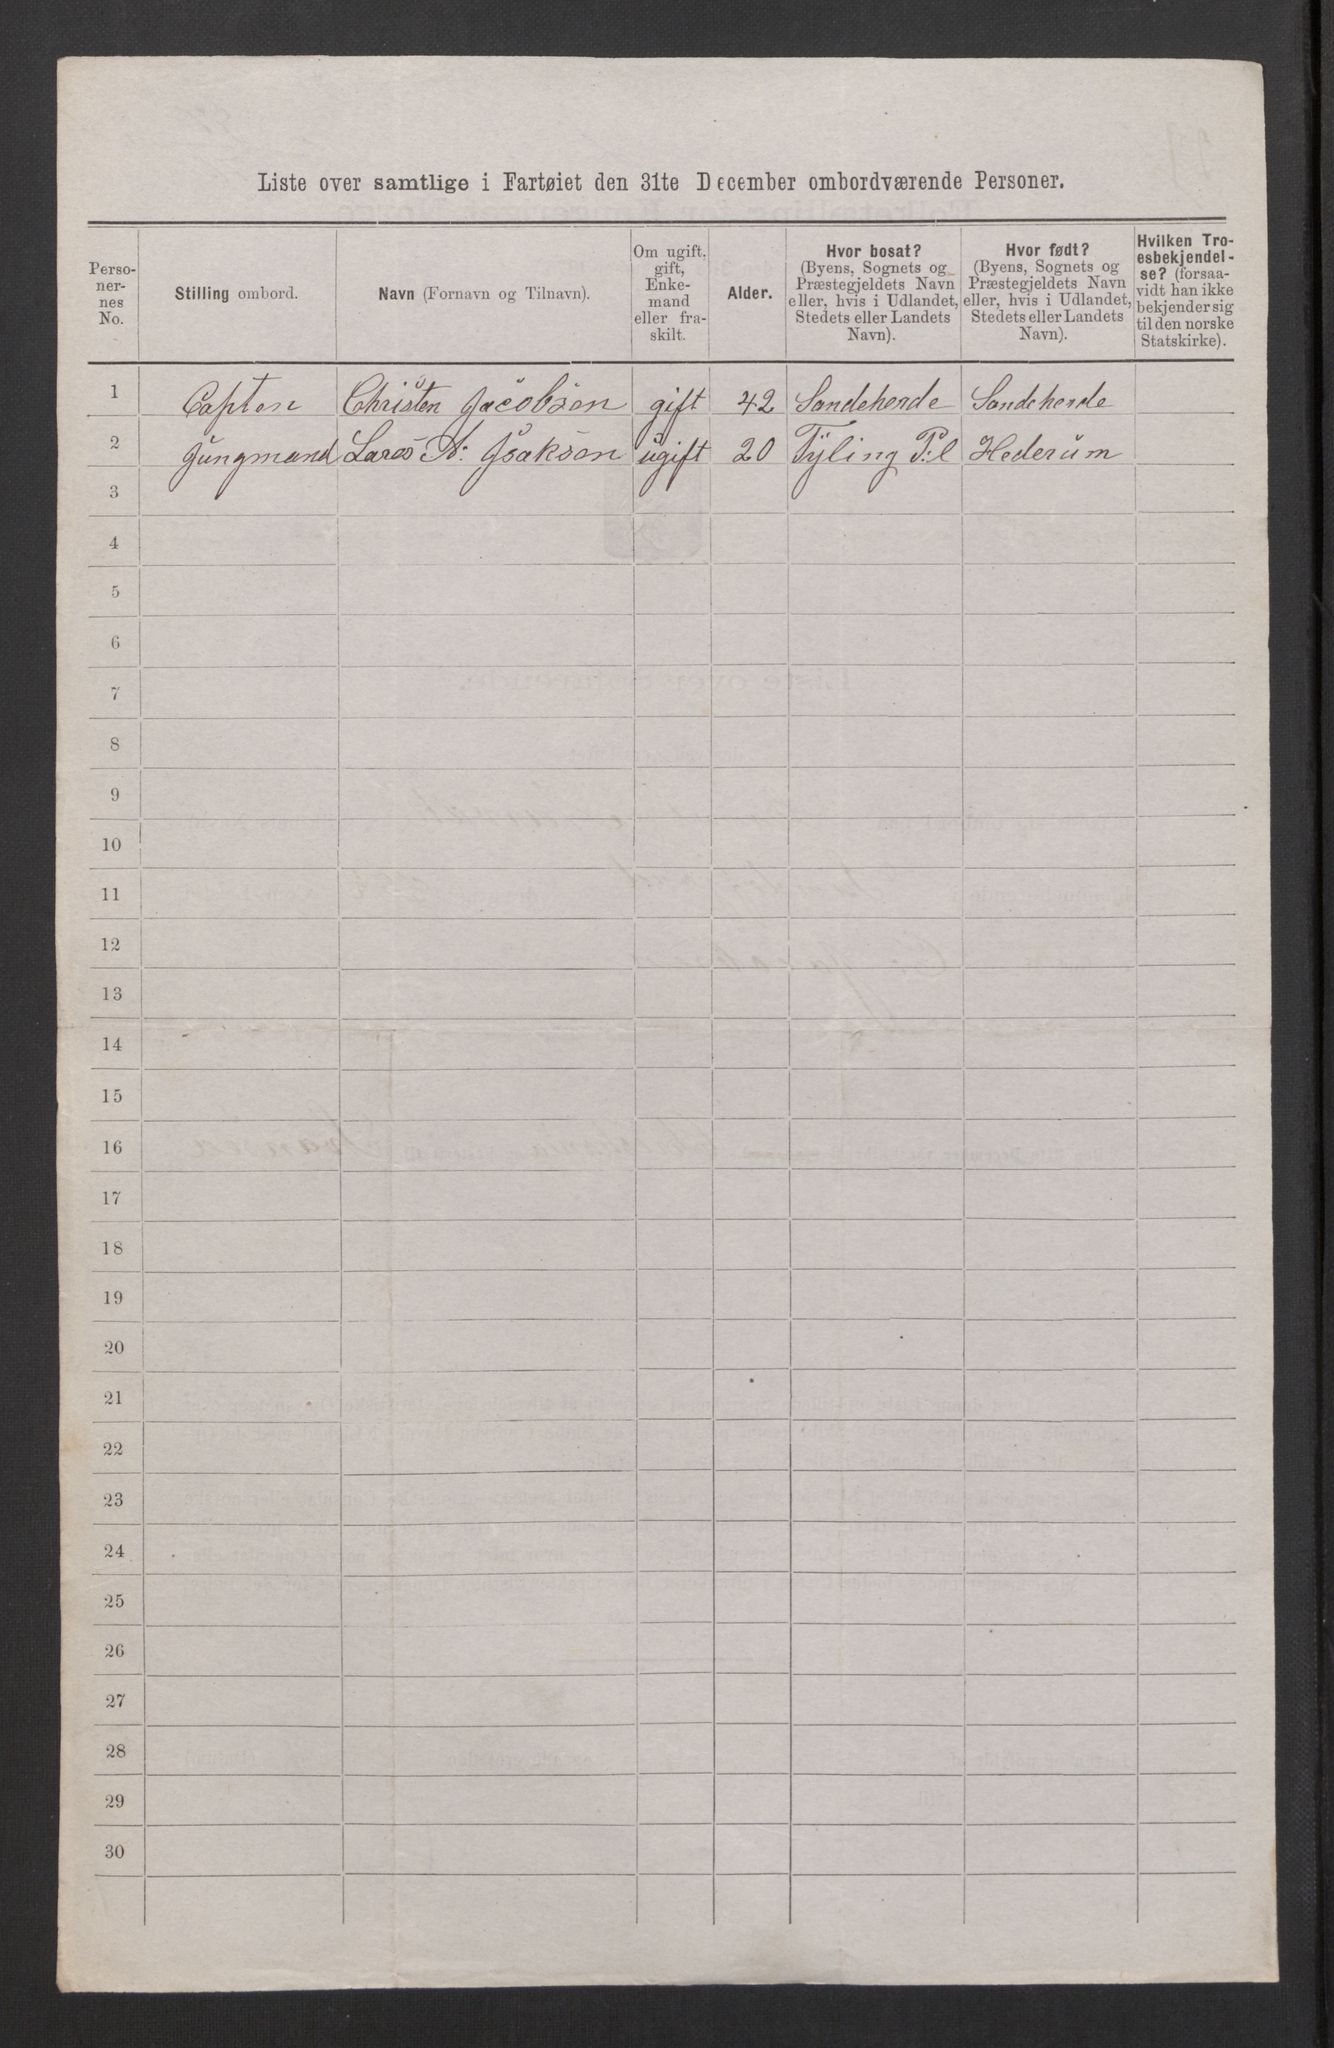 Liste over samtlige i Fartøiet den 31te December ombordværende Personer.
Perso-
ner-
nes
No.
Stilling ombord.
Navn (Fornavn og Tilnavn).
Om ugift,
gift,
Enke-
mand
eller fra-
skilt.
Alder.
Hvor bosat?
(Byens, Sognets og
Præstegjeldets Navn
eller, hvis i Udlandet,
Stedets eller Landets
Navn).
Hvor født?
(Byens, Sognets og
Præstegjeldets Navn
eller, hvis i Udlandet,
Stedets eller Landets
Navn).
Hvilken Tro-
esbekjendel-
se? (forsaa-
vidt han ikke
bekjender sig
til den norske
Statskirke).
1 Capten Christen Jacobsen gift 42 Sandeherde Sandeherde
2 Jungmand Lares A: Jsaksen ugift 20 Tyling P:l Hederum
3
4
5
6
7
8
9
10
11
12
13
14
15
16
17
18
19
20
21
22
23
24
25
26
27
28
29
30